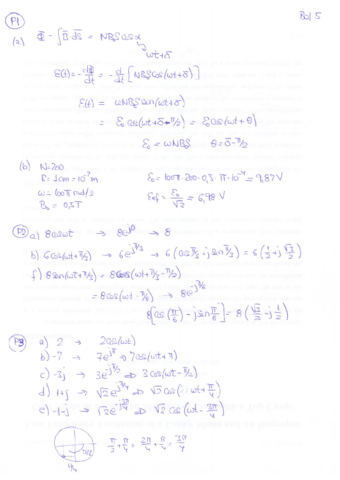 P1
Bol 5
(a) Φ = ∫B·dS = NB₀S cos α
ωt+δ
ε(t) = -dΦ/dt = -d/dt [NB₀S cos(ωt+δ)]
ε(t) = ωNB₀S sen(ωt+δ)
= ε₀ cos(ωt+δ-π/2) = ε₀ cos(ωt+θ)
ε₀ = ωNB₀S θ=δ-π/2
(b) N=200
ω=100π rad/s
B₀ = 0,5T
εef = ε₀/√2 = 6,98 V
a) 8cosωt → 8e^j0 → 8
b) 6cos(ωt+π/3) → 6e^jπ/3 → 6(cosπ/3 + j senπ/3) = 6(1/2+j√3/2)
f) 8sen(ωt+π/3) = 8cos(ωt+π/3-π/2)
= 8cos(ωt-π/6) → 8e^-jπ/6
8[cos(π/6) - j senπ/6] = 8(√3/2 - j1/2)
P3 a) 2 → 2cos(ωt)
b) -7 → 7e^jπ → 7cos(ωt+π)
c) -3j → 3e^-jπ/2 ⇒ 3cos(ωt-π/2)
d) 1+j → √2e^jπ/4 ⇒ √2 cos(ωt+π/4)
e) -1-j → √2e^-j3π/4 ⇒ √2 cos(ωt-3π/4)
π/2+π/4 = 2π/4+π/4 = 3π/4